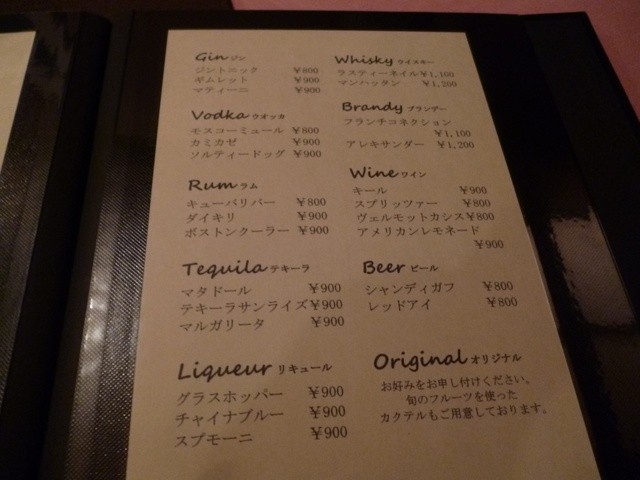 Gin ジン
ジントニック ¥800
ギムレット ¥900
マティーニ ¥900
Vodka ウオッカ
モスコーミュール ¥800
カミカゼ ¥900
ソルティードッグ ¥900
Rum ラム
キューバリバー ¥800
ダイキリ ¥900
ボストンクーラー ¥900
Tequila テキーラ
マタドール ¥900
テキーラサンライズ¥900
マルガリータ ¥900
Liqueur リキュール
グラスホッパー ¥900
チャイナブルー ¥900
スプモーニ ¥900
Whisky ウイスキー
ラスティーネイル¥1,100
マンハッタン ¥1,200
Brandy ブランデー
フランチコネクション
¥1,100
アレキサンダー ¥1,200
Wine ワイン
キール ¥900
スプリッツァー ¥800
ヴェルモットカシス¥800
アメリカンレモネード
¥900
Beer ビール
シャンディガフ ¥800
レッドアイ ¥800
Original オリジナル
お好みをお申し付けください。
旬のフルーツを使った
カクテルもご用意しております。